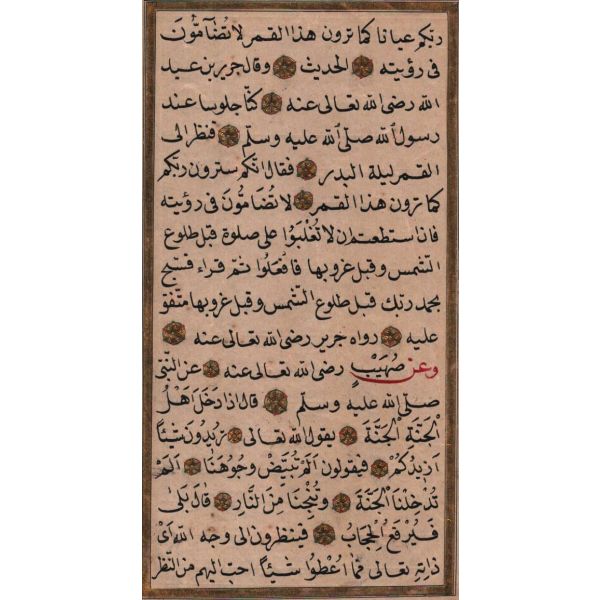 ربكم عيانا كما ترون هذا القمر لا تضآمّونَ
فى رؤيته الحديث وقال جرير بن عبد
الله رضى الله تعالى عنه كنّا جلوسا عند
رسول الله صلّى الله عليه وسلّم فنظر الى
القمر ليلة البدر فقال انّكم سترون ربّكم
كما ترون هذا القمر لا تُضَامّونَ فى رؤيته
فان استطعتم ان لا تُغْلَبُوا على صلوة قبل طلوع
الشّمس وقبل غروبها فافعَلُوا ثمّ قراء فسبّح
بحمد ربّك قبل طلوع الشّمس وقبل غروبها متّفق
عليه رواه جرير رضى الله تعالى عنه
وعن صُهَيْبٍ رضى الله تعالى عنه عن النّبىّ
صلّى الله عليه وسلّم قال اذا دَخَلَ اَهْلُ
الْجَنَّةِ الْجَنَّةَ يقول الله تعالى تُرِيدُونَ شَيْئاً
اَزِيدُكُمْ فيقولون اَلَمْ تُبَيِّضْ وجُوهَنَا اَلَمْ
تُدْخِلْنَا الْجَنَّةَ وتُنْجِنَا مِنَ النَّارِ قَالَ بَلَى
فَيُرْفَعُ الْحِجَابُ فينظرون الى وجه الله اَىْ
ذاتِهِ تعالى فمَا اُعْطُوا شَيْئاً احبّ اليهم من النّظر